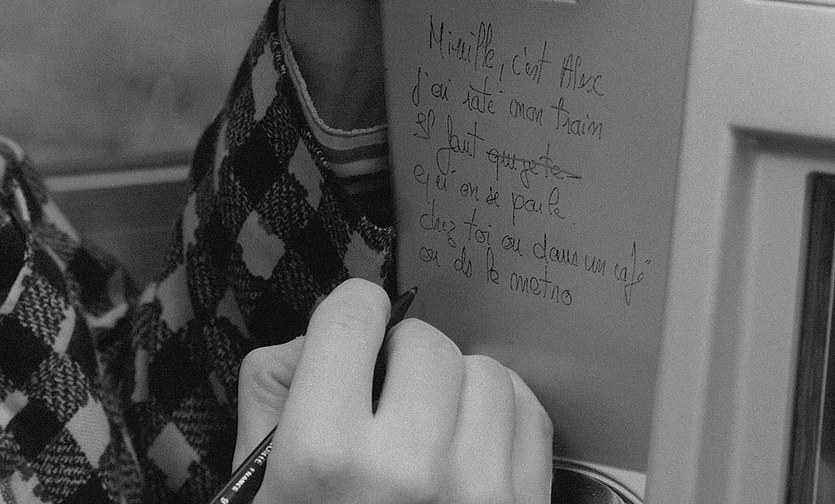 Mireille, c'est Alex
j'ai raté mon train
Il faut que je te
qu'on se parle.
chez toi ou dans un café
ou ds le metro
FRANCE